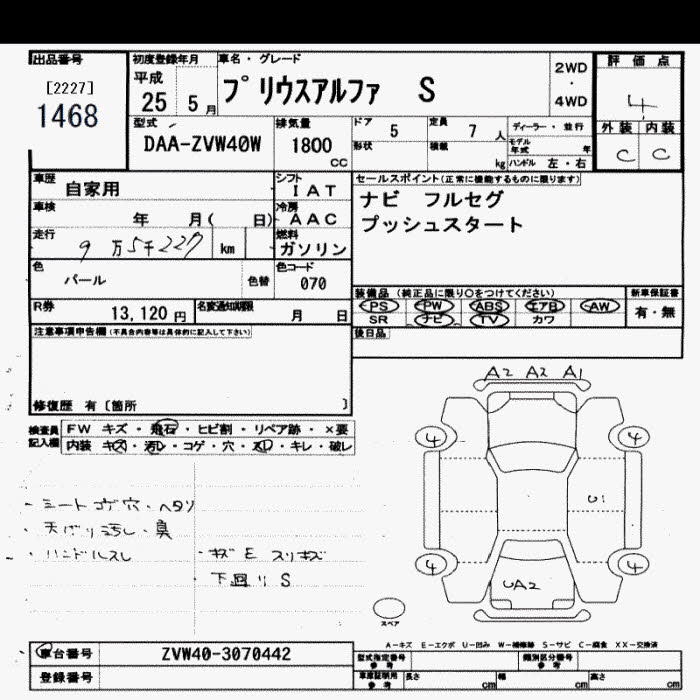 出品番号
[2227]
1468
初度登録年月
平成
25 5 月
車名・グレード
プリウスアルファ S
2WD
・
4WD
評価点
4
外装 内装
C C
型式
DAA-ZVW40W
排気量
1800
CC
ドア 5
定員 7 人
形状
積載 kg
ディーラー・並行
モデル年式 年
ハンドル 左・右
車歴 自家用
シフト
IAT
車検 年 月( 日)
冷房
AAC
走行 9万5千227 km
燃料
ガソリン
色
パール
色替
色コード
070
R券
13,120 円
名変通知期限
月 日
セールスポイント(正常に機能するものに限ります)
ナビ フルセグ
プッシュスタート
装備品 (純正品に限り〇をつけてください)
PS PW ABS エアB AW
SR ナビ TV カワ
新車保証書
有・無
後日品
注意事項申告欄(不具合内容等は具体的に記入して下さい)
修復歴 有〔箇所 〕
検査員
記入欄
FW キズ・飛石・ヒビ割・リペア跡・×要
内装 キズ・汚レ・コゲ・穴・スレ・キレ・破レ
・シートコゲ穴・ヘタリ
・天バリ汚レ・臭
・ハンドルスレ
・キズE スリキズ
・下回りS
A2 A2 A1
4 4
U1
4 4
UA2
スペア
A-キズ E-エクボ U-凹み W-補修跡 S-サビ C-腐食 XX-交換済
車台番号 ZVW40-3070442
登録番号
型式指定番号
参考
類別区分番号
参考
車庫証明用
参考
長さ cm
幅 cm
高さ cm